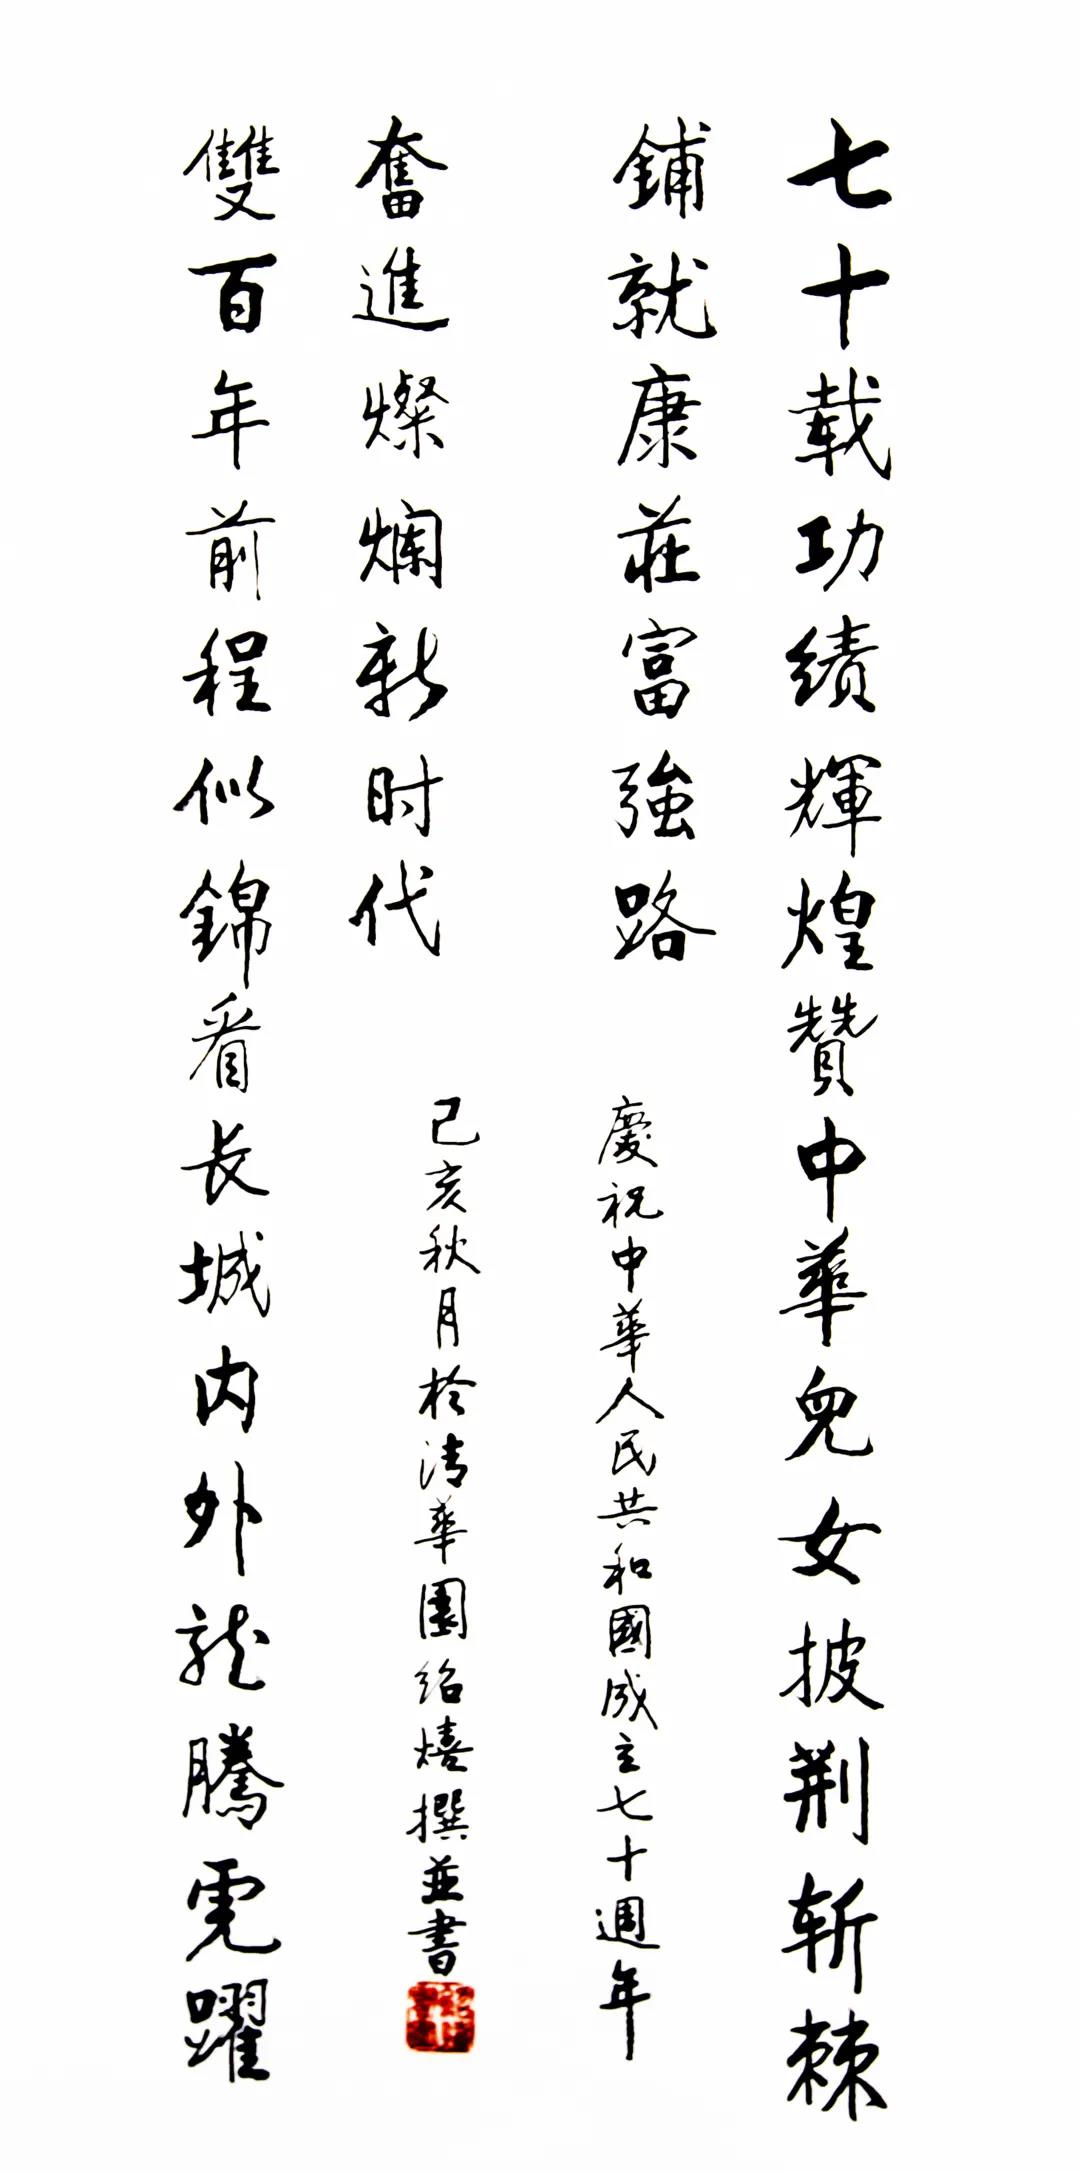 七十载功績輝煌贊中華兒女披荆斩棘
鋪就康莊富強路
慶祝中華人民共和國成立七十週年
雙百年前程似錦看長城内外龍騰虎躍
奮進燦爛新时代
己亥秋月於清華園紹熺撰並書